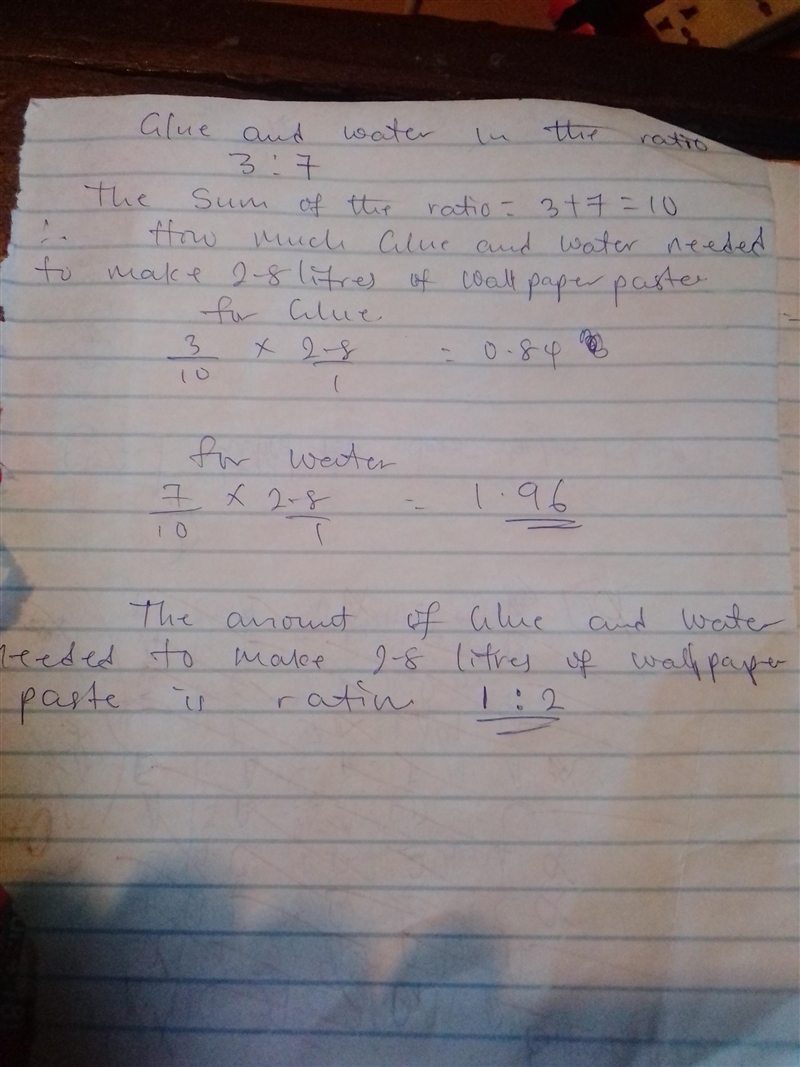 Glue and water in the ratio
3 : 7
The Sum of the ratio = 3+7 = 10
∴ How much Glue and water needed
to make 2-8 litres of wall paper paster
for Glue.
3/10 × 2-8/1 = 0.84
for water
7/10 × 2-8/1 = 1.96
The amount of Glue and water
needed to make 2-8 litres of wallpaper
paste is ratio 1 : 2